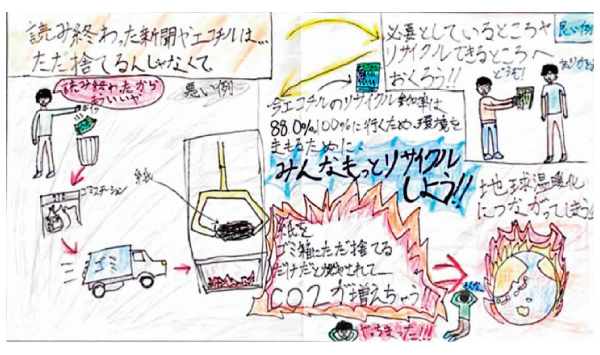 読み終わった新聞やエコチルは…
ただ捨てるんじゃなくて、
必要としているところや
リサイクルできるところへ
おくろう!!
良い例
どうぞ!
ありがとう
読み終わったから
もういいや
悪い例
今エコチルのリサイクル率は
88.0%、100%に行くため、環境を
まもるために
みんなもっとリサイクル
しよう!!
ゴミステーション
紙
ゴミ
紙を
ゴミ箱にただ捨てる
だけだと燃やされて…
CO2が増えちゃう
やっちまった!!!
地球温暖化
につながってしまう!!